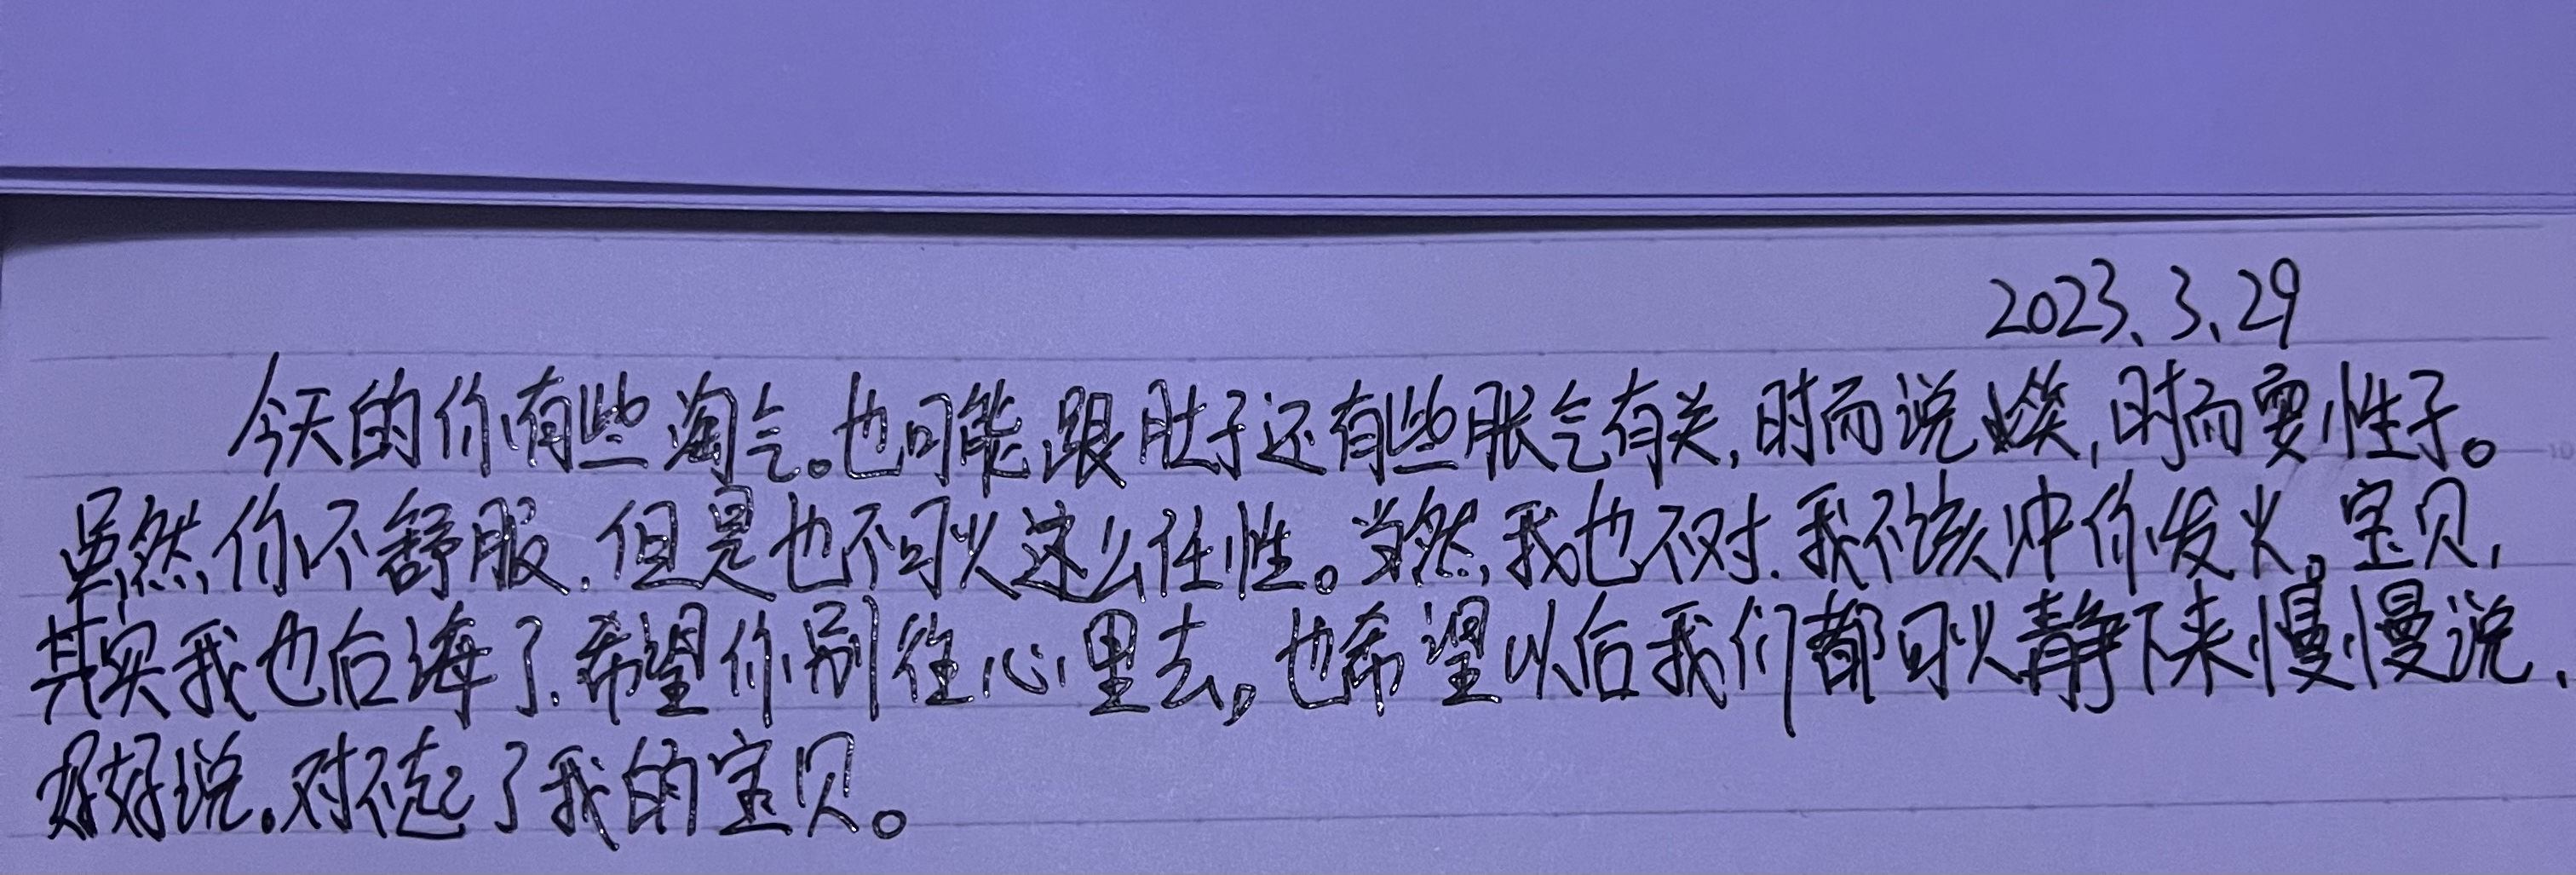 2023.3.29
今天的你有些淘气。也可能跟肚子还有些胀气有关,时而说笑,时而耍性子。
虽然你不舒服,但是也不可以这么任性。当然,我也不对,我不该冲你发火。宝贝,
其实我也后悔了,希望你别往心里去,也希望以后我们都可以静下来慢慢说、
好好说。对不起了我的宝贝。